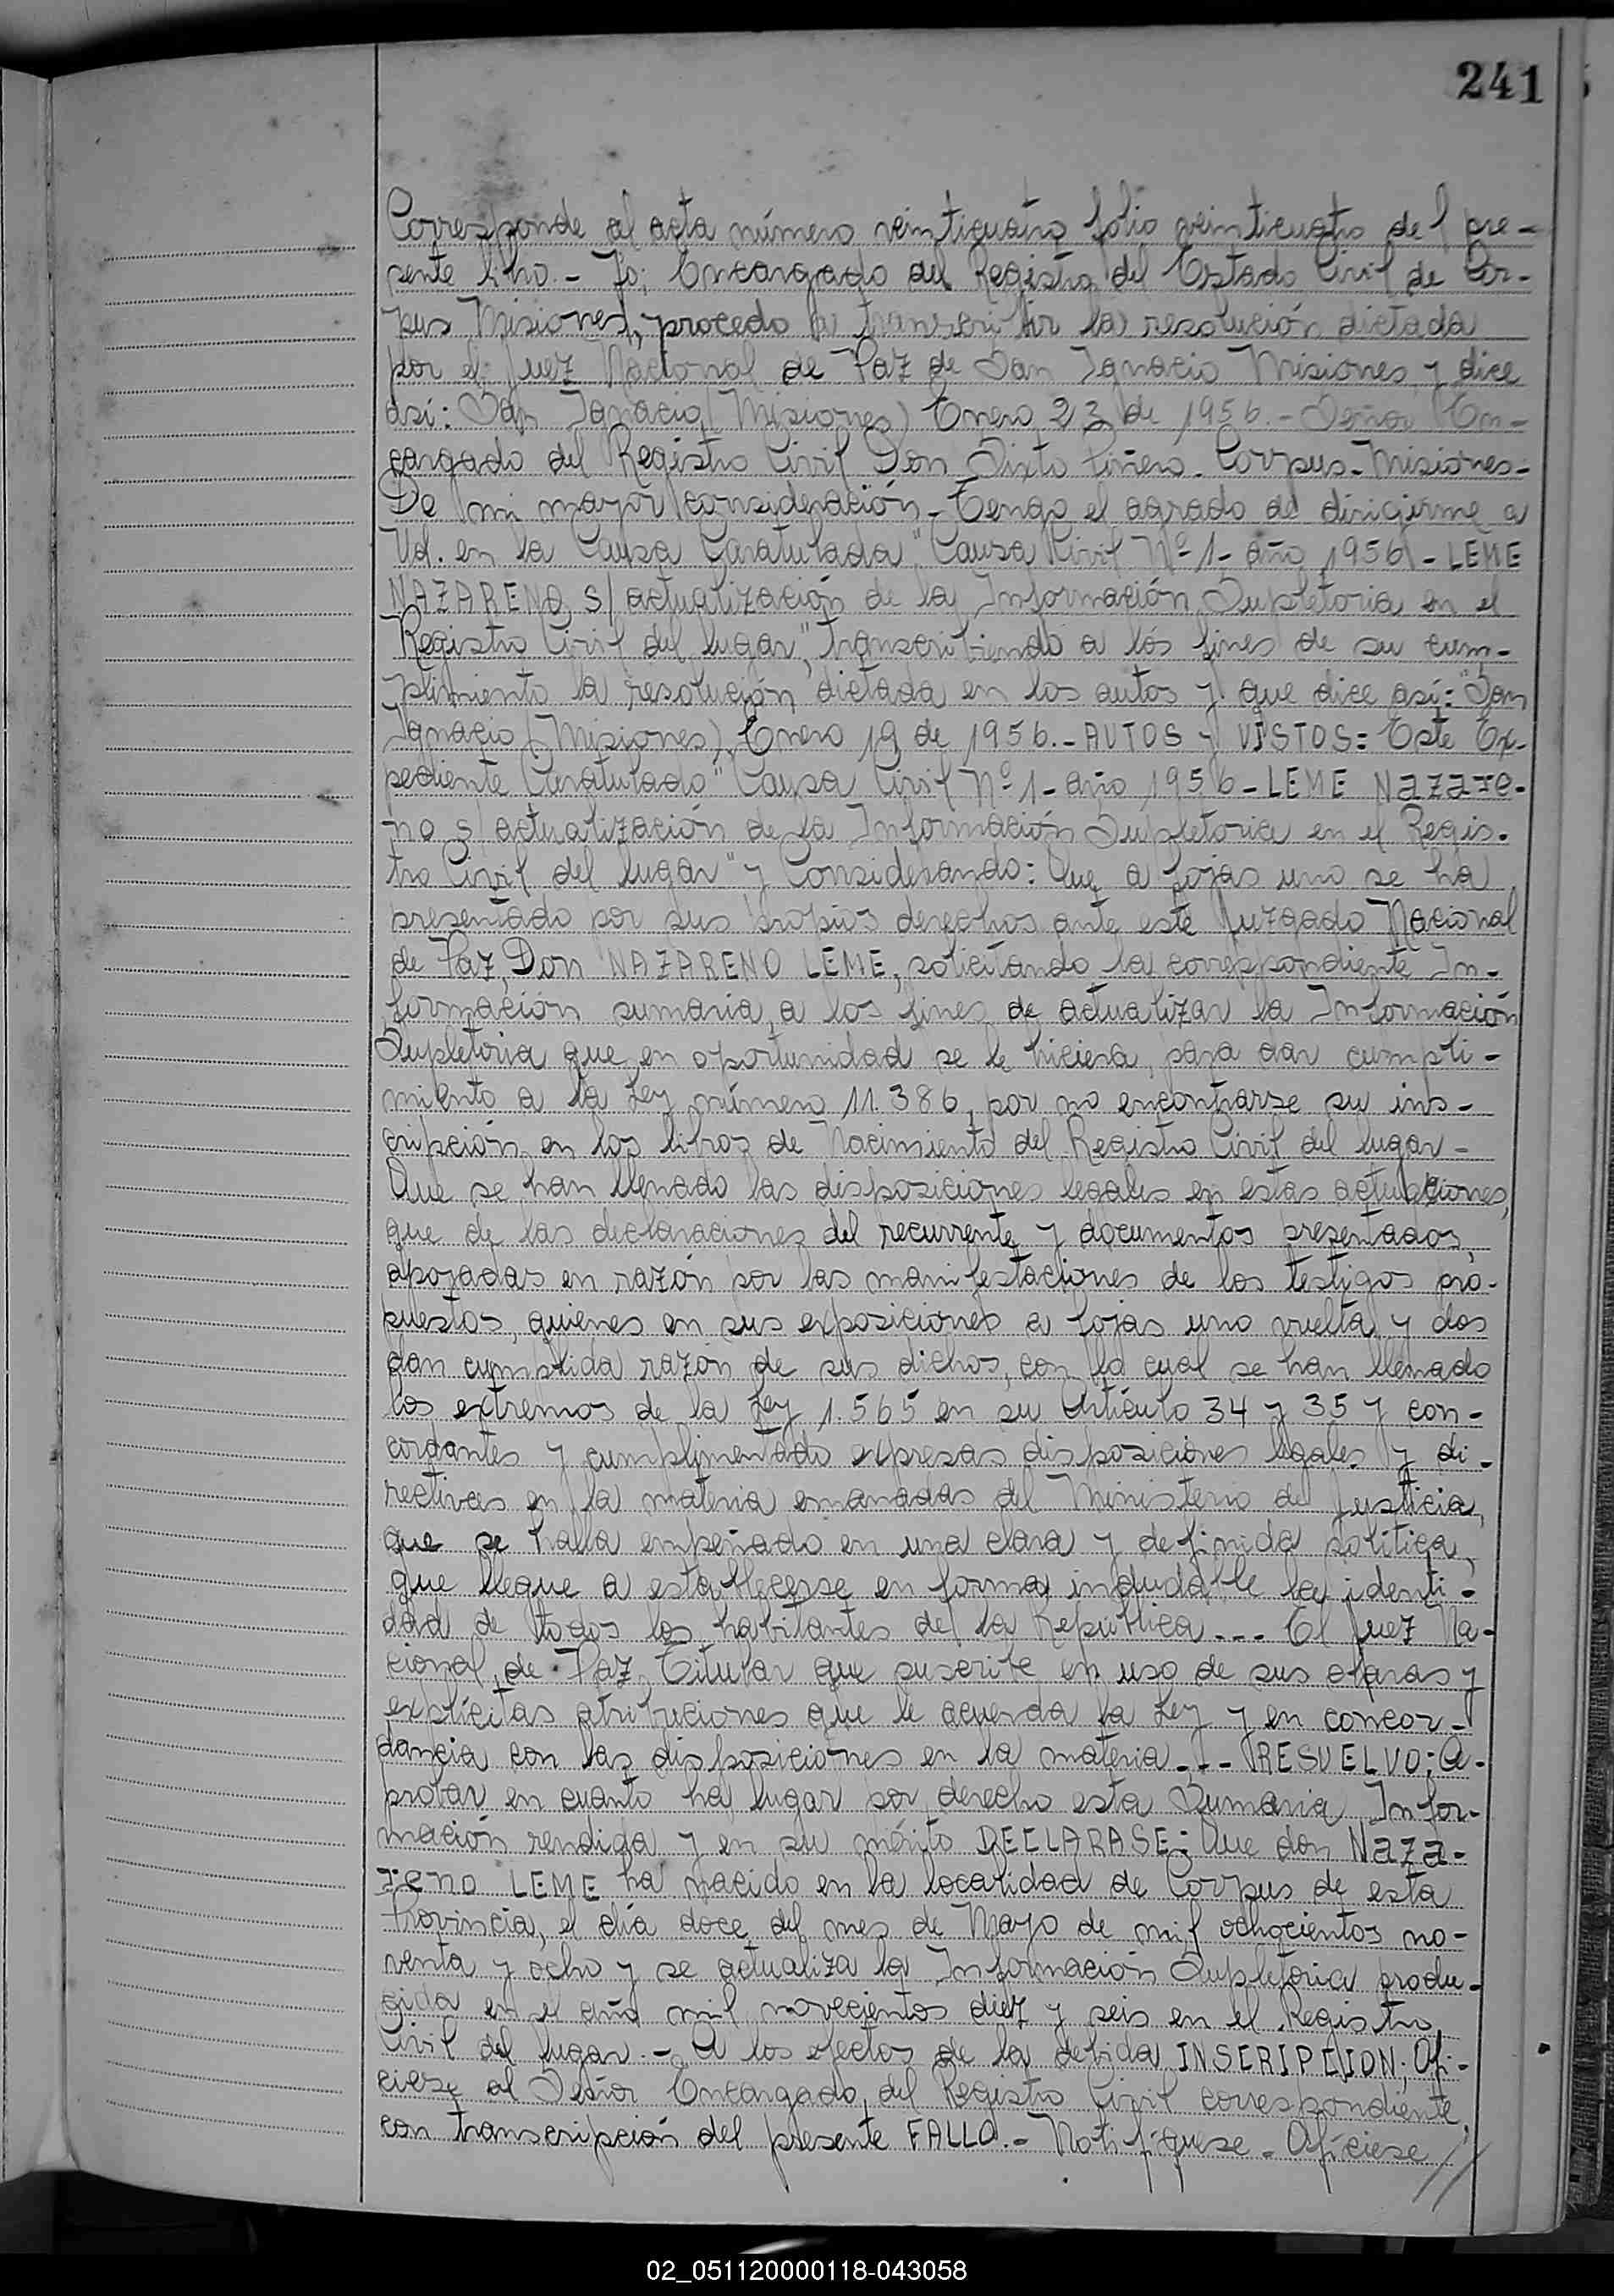 241
Corresponde al acta número veinticuatro folio veinticuatro del pre-
sente libro.- Yo; Encargado del Registro del Estado Civil de Cor-
pus Misiones, procedo a transcribir la resolución dictada
por el Juez Nacional de Paz de San Ignacio Misiones y dice
así: San Ignacio (Misiones) Enero 23 de 1956.- Señor En-
cargado del Registro Civil Don Sixto Piñero. Corpus-Misiones-
De mi mayor consideración- Tengo el agrado de dirigirme a
Ud. en la Causa Caratulada "Causa Civil Nº 1- año 1956 - LEME
NAZARENO s/ actualización de la Información Supletoria en el
Registro Civil del lugar", transcribiendo a los fines de su cum-
plimiento la resolución dictada en los autos y que dice así: "San
Ignacio (Misiones), Enero 19 de 1956.- AUTOS y VISTOS: Este Ex-
pediente Caratulado "Causa Civil Nº 1- año 1956- LEME Nazare-
no s/ actualización de la Información Supletoria en el Regis-
tro Civil del lugar" y Considerando: Que a fojas uno se ha
presentado por sus propios derechos ante este Juzgado Nacional
de Paz, Don NAZARENO LEME, solicitando la correspondiente In-
formación sumaria, a los fines de actualizar la Información
Supletoria que en oportunidad se le hiciera, para dar cumpli-
miento a la Ley número 11.386, por no encontrarse su ins-
cripción en los libros de Nacimiento del Registro Civil del lugar-
Que se han llenado las disposiciones legales en estas actuaciones,
que de las declaraciones del recurrente y documentos presentados,
apoyadas en razón por las manifestaciones de los testigos pro-
puestos, quienes en sus exposiciones a fojas uno vuelta y dos
dan cumplida razón de sus dichos, con lo cual se han llenado
los extremos de la Ley 1.565 en su Artículo 34 y 35 y con-
cordantes y cumplimentado expresas disposiciones legales y di-
rectivas en la materia emanadas del Ministerio de Justicia,
que se halla empeñado en una clara y definida política,
que llegue a establecerse en forma indudable la identi-
dad de todos los habitantes de la República... El Juez Na-
cional de Paz Titular que suscribe en uso de sus claras y
explícitas atribuciones que le acuerda la Ley y en concor-
dancia con las disposiciones en la materia.-.- RESUELVO: A-
probar en cuanto ha lugar por derecho esta Sumaria Infor-
mación rendida y en su mérito DECLARASE: Que don Naza-
reno LEME ha nacido en la localidad de Corpus de esta
Provincia, el día doce del mes de Mayo de mil ochocientos no-
venta y ocho y se actualiza la Información Supletoria produ-
cida en el año mil novecientos diez y seis en el Registro
Civil del lugar.- A los efectos de la debida INSCRIPCION; Ofi-
ciese al Señor Encargado del Registro Civil correspondiente,
con transcripción del presente FALLO.- Notifíquese- Ofíciese//
02_051120000118-043058